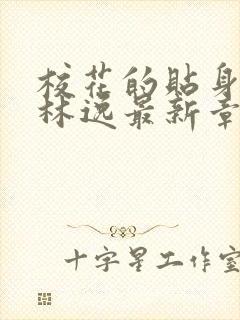 校花的貼身
林逸最新章
十字星工作室